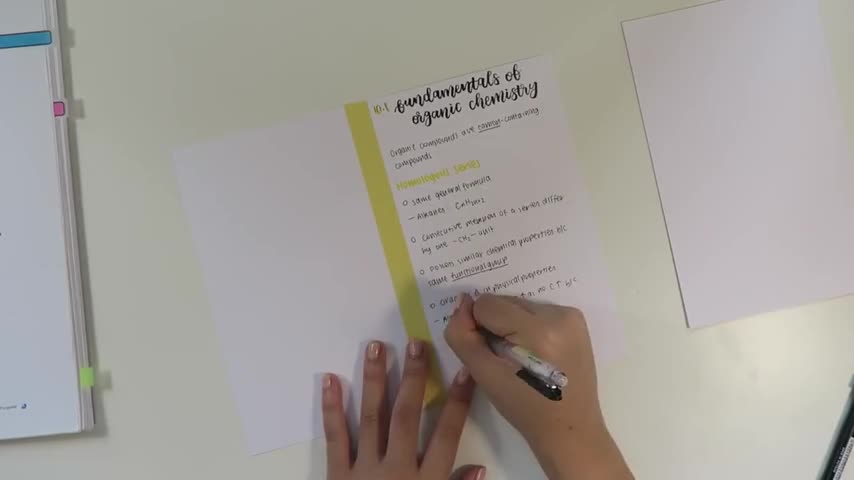 10.1 fundamentals of
organic chemistry
Organic compounds are carbon-containing
compounds
Homologous Series
O same general formula
- Alkanes CnH2n+2
O consecutive members of a series differ
by one -CH2- unit
O similar chemical properties b/c
same functional group
O in physical properties
↑ as no C ↑ b/c